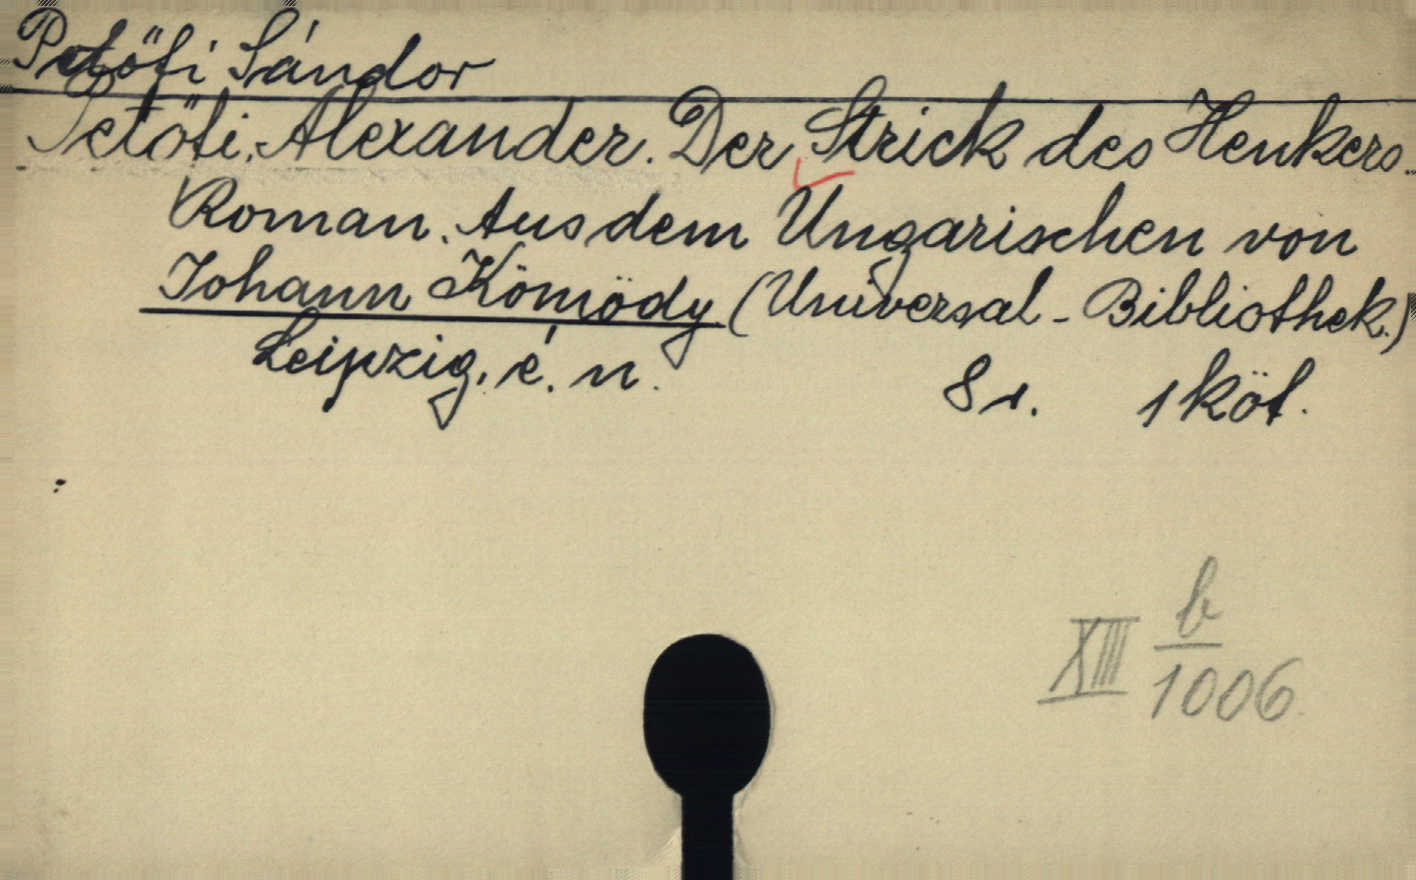 Petőfi Sándor
Petőfi, Alexander. Der Strick des Henkers.
Roman. Aus dem Ungarischen von
Johann Kömödy (Universal-Bibliothek.)
Leipzig, é. n. 8 r. 1 köt.
XIII b/1006